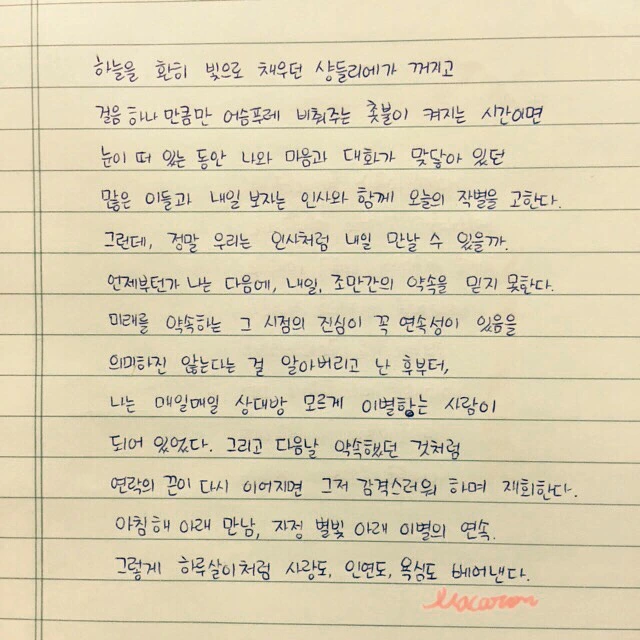 하늘을 환히 빛으로 채우던 샹들리에가 꺼지고
걸음 하나 만큼만 어슴푸레 비춰주는 촛불이 켜지는 시간이면
눈이 떠 있는 동안 나와 마음과 대화가 맞닿아 있던
많은 이들과 내일 보자는 인사와 함께 오늘의 작별을 고한다.
그런데, 정말 우리는 인사처럼 내일 만날 수 있을까.
언제부턴가 나는 다음에, 내일, 조만간의 약속을 믿지 못한다.
미래를 약속하는 그 시점의 진심이 꼭 연속성이 있음을
의미하진 않는다는 걸 알아버리고 난 후부터,
나는 매일매일 상대방 모르게 이별하는 사람이
되어 있었다. 그리고 다음날 약속했던 것처럼
연락의 끈이 다시 이어지면 그저 감격스러워 하며 재회한다.
아침해 아래 만남, 자정 별빛 아래 이별의 연속.
그렇게 하루살이처럼 사랑도, 인연도, 욕심도 베어낸다.
Macaron